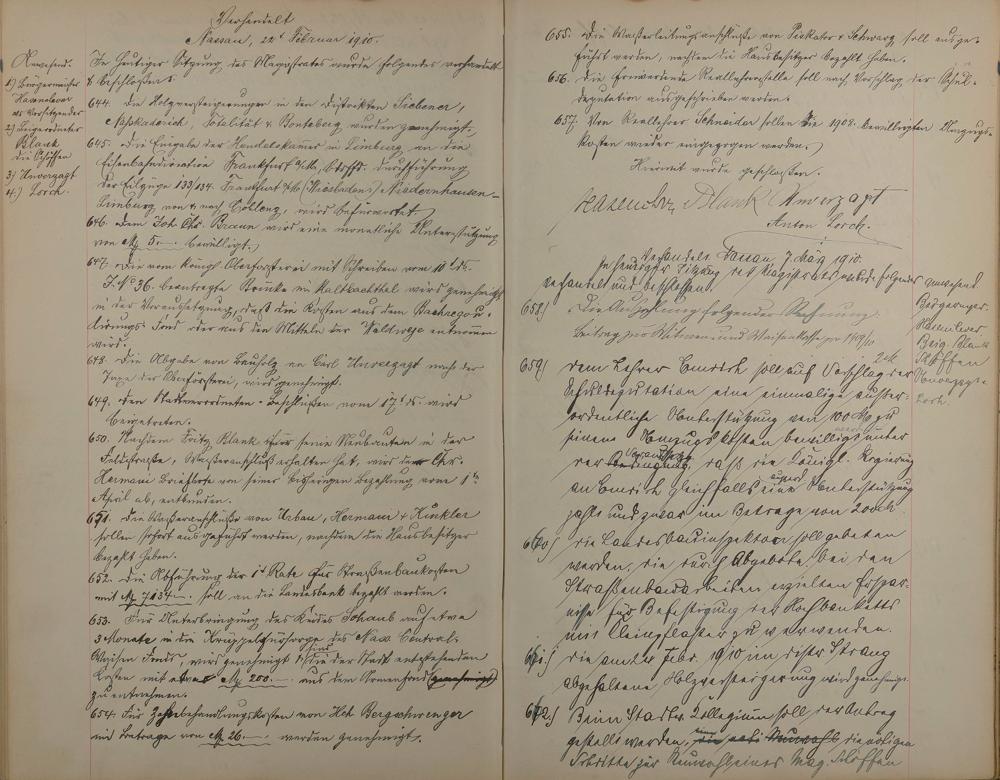 Verhandelt
Nassau, 22t Februar 1910.
Anwesend.
1) Bürgermeister
Hasenclever
als Vorsitzender
2) Beigeordneter
Blank
die Schöffen
3) Unverzagt
4.) Lorch.
In heutiger Sitzung des Magistrates wurde folgendes verhandelt
& beschlossen:
644. Die Holzversteigerungen in den Distrikten
wurden genehmigt.
645. Die Eingabe der Handelskammer in Limburg an die
Eisenbahndirektion Frankfurt a/M., Durchführung
der Eilzüge 133/134. Frankfurt a/M (Wiesbaden) Niedernhausen-
Limburg von & nach wird befürwortet.
646. Dem Joh. Chr. Braun wird eine monatliche Unterstützung
von M 5.— bewilligt.
647. Die vom Königl. Oberförsterei mit Schreiben vom 11t ds.
J. No 36. beantragte Brücke im Kaltbachthal wird genehmigt
in der Voraussetzung, daß die Kosten aus dem Bachregu-
lierungs-Fond oder aus den Mitteln der Waldwege entnommen
wird.
648. Die Abgabe von Bauholz an Carl Unverzagt nach der
Taxe der Oberförsterei, wird genehmigt.
649. Den Stadtverordneten-Beschlüßen vom 17t ds. wird
beigetreten.
650. Nachdem Fritz Blank für seine Neubauten in der
Feldstraße, Waßeranschluß erhalten hat, wird der Chr.
Hermann von seiner bisherigen Bezahlung vom 1t
April ab, entbunden.
651. Die Waßeranschlüße von Urban, Hermann & Kunkler
sollen sofort ausgeführt werden, nachdem die Hausbesitzer
bezahlt haben.
652. Die Abführung der 1t Rate für Straßenbaukosten
mit M 7134.— soll an die Landesbank bezahlt werden.
653. Für Unterbringung des Kindes auf etwa
3 Monate in die Krüppelfürsorge des Nass. Central-
Waisen Fonds, wird genehmigt & sind die der Stadt entstehenden
Kosten mit etwa M 200.— aus dem Armenfond
zu entnehmen.
654. Für Zahnbehandlungskosten von Hch. Bergschwenger
im Betrage von M 26.— werden genehmigt.
655. Die Waßerleitungsanschlüße von Piskator & Schwarz soll ausge-
führt werden, nachdem die Hausbesitzer bezahlt haben.
656. Die freiwerdende Reallehrerstelle soll nach Vorschlag der Schul-
deputation ausgeschrieben werden.
657. Von Reallehrer Schneider sollen die 1908. bewilligten Umzugs-
kosten wieder eingezogen werden.
Hiermit wurde geschloßen.
Hasenclever Blank Unverzagt
Anton Lorch.
Verhandelt Nassau, 7. März 1910.
In heutiger Sitzung des Magistrates wurde folgendes
verhandelt und beschlossen.
anwesend
Bürgermstr.
Hasenclever
Beig. Blank
Schöffen
Unverzagt
Lorch.
658.) Die Auszahlung folgender Rechnung
Beitrag zur Witwen- und Waisenkasse pr 1909/10
659) Dem Lehrer Emrich soll auf Vorschlag der
Schuldeputation eine einmalige außer-
ordentliche Unterstützung von 100 M zu
seinen Umzugskosten bewilligt werden unter
der Voraussetzg. daß die Königl. Regierung
an Emrich gleichfalls eine Unterstützung
zahle und zwar im Betrage von
670) Die Landesbauinspektion soll gebeten
werden, die durch Abgebote bei den
Straßenbauarbeiten erzielten Erspar-
nisse für Befestigung des Hochbanketts
mit Kleinpflaster zu verwenden.
671.) Die am Febr. 1910 im Distr. Strang
abgehaltene Holzversteigerung wird genehmigt.
672.) Beim Stadtv. Kollegium soll der Antrag
gestellt werden, die nötigen
Schritte zur Neuwahl eines Mag. Schöffen